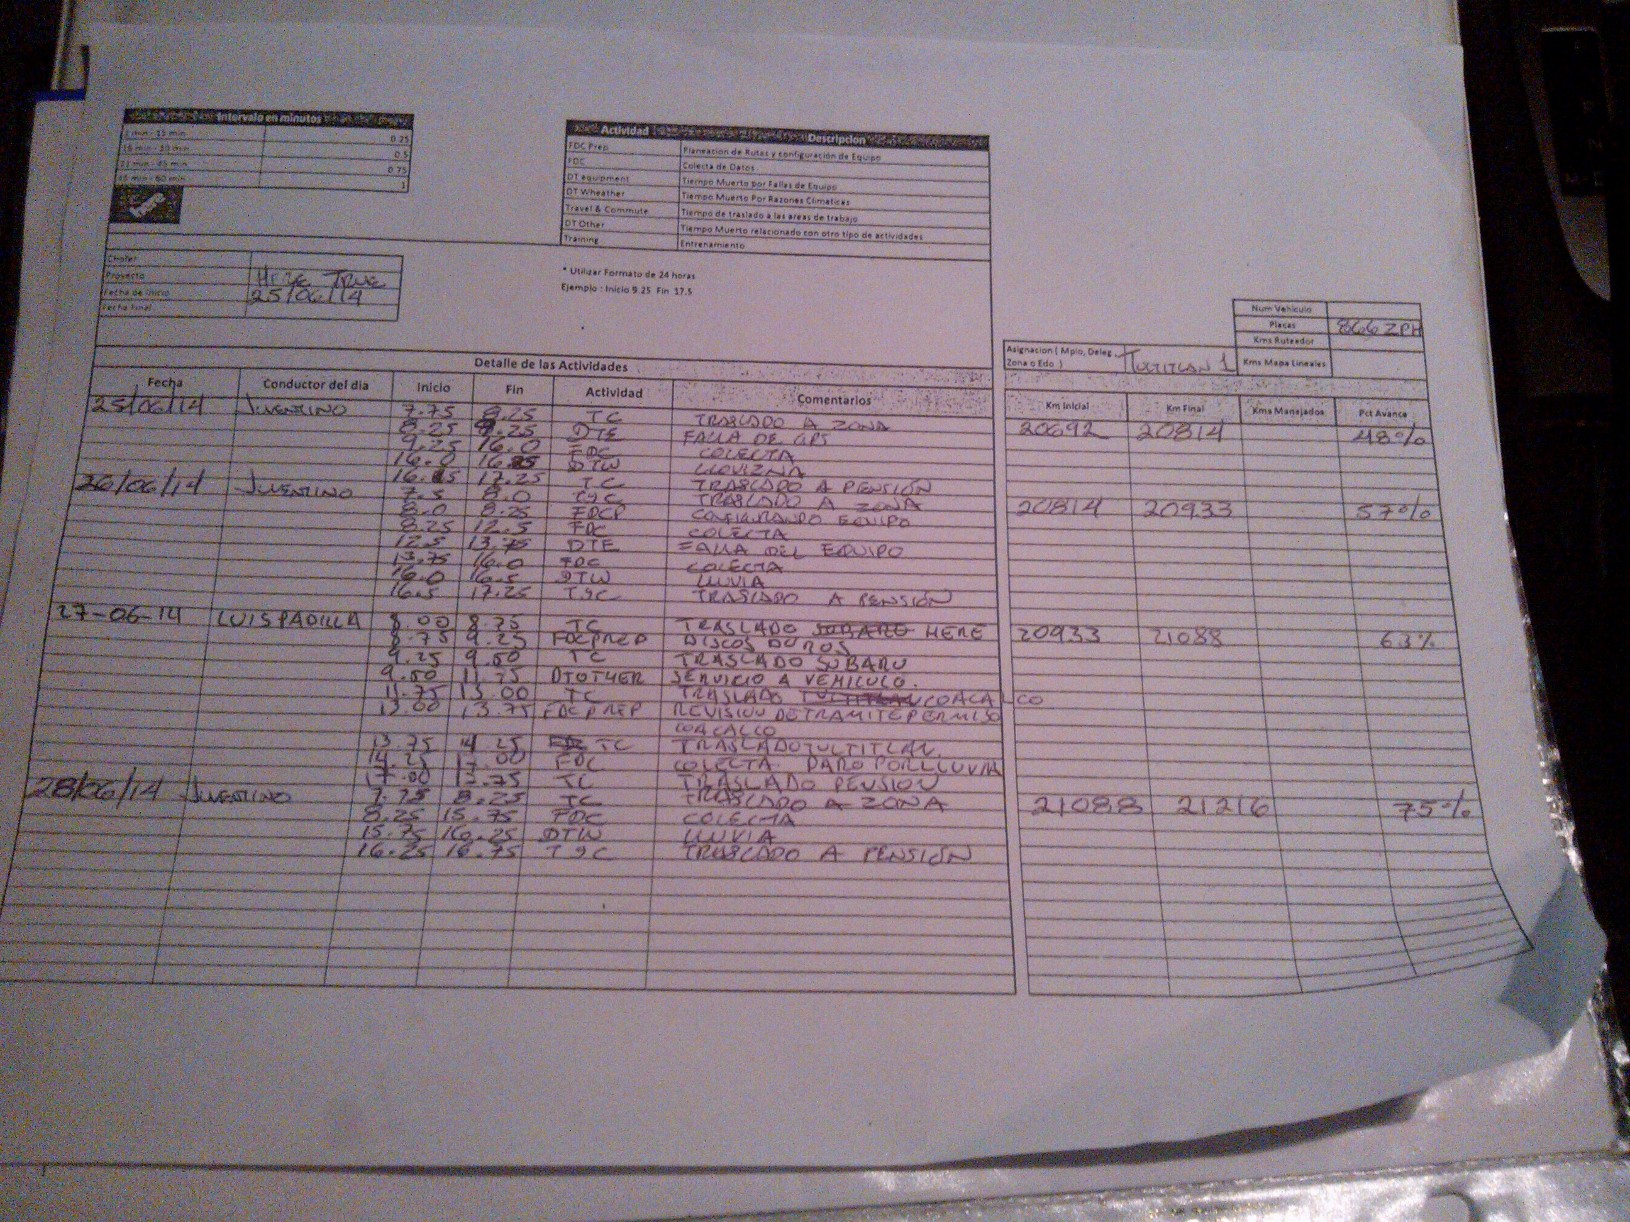 Intervalo en minutos
1 min - 15 min 0.25
16 min - 30 min 0.5
31 min - 45 min 0.75
46 min - 60 min 1
Actividad Descripcion
FDC Prep Planeacion de Rutas y configuración de Equipo
FDC Colecta de Datos
DT equipment Tiempo Muerto por Fallas de Equipo
DT Wheather Tiempo Muerto Por Razones Climaticas
Travel & Commute Tiempo de traslado a las areas de trabajo
DT Other Tiempo Muerto relacionado con otro tipo de actividades
Training Entrenamiento
* Utilizar Formato de 24 horas
Ejemplo : Inicio 9.25 Fin 17.5
Chofer
Proyecto HERE TRUE
Fecha de Inicio 25/06/14
Fecha Final
Num Vehiculo
Placas 866 ZPH
Kms Ruteador
Kms Mapa Lineales
Asignacion ( Mpio, Deleg, Zona o Edo ) TULTITLAN 1
Detalle de las Actividades
Fecha Conductor del dia Inicio Fin Actividad Comentarios Km Inicial Km Final Kms Manejados Pct Avance
25/06/14 JUVENTINO 7.75 8.25 TC TRASLADO A ZONA 20692 20814 48%
8.25 9.25 DTE FALLA DE GPS
9.25 16.0 FDC COLECTA
16.0 DTW LLOVIZNA
17.25 TC TRASLADO A PENSIÓN
26/06/14 JUVENTINO 7.5 8.0 TyC TRASLADO A ZONA 20814 20933 57%
8.0 8.25 FDCP CONFIGURANDO EQUIPO
8.25 12.5 FDC COLECTA
12.5 13.75 DTE FALLA DEL EQUIPO
13.75 16.0 FDC COLECTA
16.0 16.5 DTW LLUVIA
16.5 17.25 TyC TRASLADO A PENSIÓN
27-06-14 LUIS PADILLA 8.00 8.75 TC TRASLADO SUBARU HERE 20933 21088 63%
8.75 9.25 FDCPREP DISCOS DUROS
9.25 9.50 TC TRASLADO SUBARU
9.50 11.75 DTOTHER SERVICIO A VEHICULO.
11.75 13.00 TC TRASLADO TULTITLAN COACALCO
13.00 13.75 FDCPREP REVISION DE TRAMITE PERMISO
COACALCO
13.75 14.25 TC TRASLADO TULTITLAN.
14.25 17.00 FDC COLECTA PARO POR LLUVIA
17.00 17.75 TC TRASLADO PENSION
28/06/14 JUVENTINO 7.75 8.25 TC TRASLADO A ZONA 21088 21216 75%
8.25 15.75 FDC COLECTA
15.75 16.25 DTW LLUVIA
16.25 16.75 TyC TRASLADO A PENSIÓN